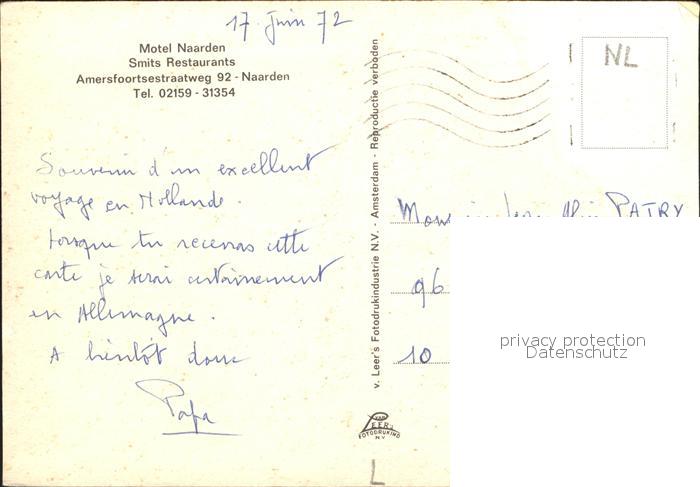 17. Juin 72
Motel Naarden
Smits Restaurants
Amersfoortsestraatweg 92 - Naarden
Tel. 02159 - 31354
Souvenir d'un excellent
voyage en Hollande.
Lorsque tu recevras cette
carte je serai certainement
en Allemagne.
A bientôt donc
Papa
v. Leer's Fotodrukindustrie N.V. - Amsterdam - Reproductie verboden
NL
Monsieur Jean PATRY
96
10
privacy protection
Datenschutz
VAN
LEER's
FOTODRUKIND
N.V.
L